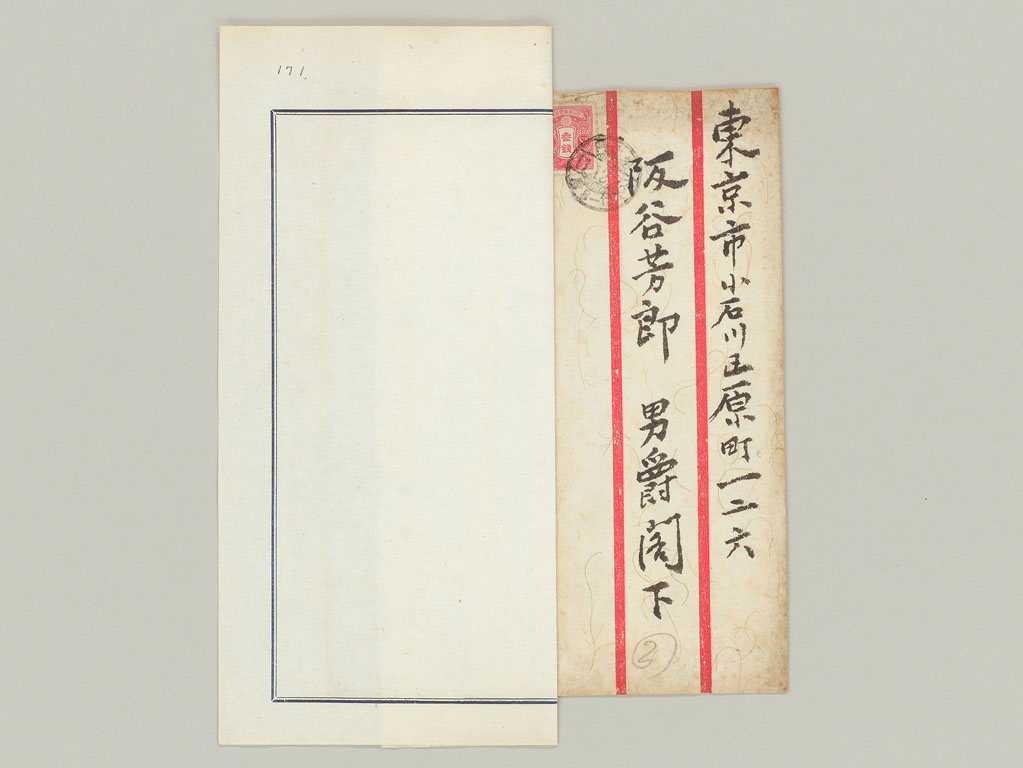 東京市小石川区原町一二六
阪谷芳郎 男爵閣下
参銭
2
171